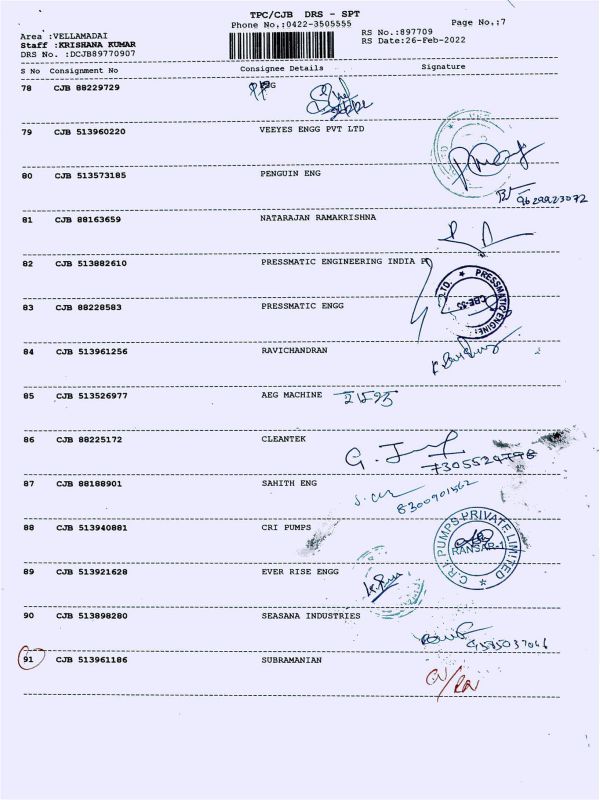 TPC/CJB DRS - SPT
Phone No.:0422-3505555 Page No.:7
Area :VELLAMADAI RS No.:897709
Staff :KRISHANA KUMAR RS Date:26-Feb-2022
DRS No. :DCJB89770907
S No Consignment No Consignee Details Signature
78 CJB 88229729
79 CJB 513960220 VEEYES ENGG PVT LTD
80 CJB 513573185 PENGUIN ENG
9629923072
81 CJB 88163659 NATARAJAN RAMAKRISHNA
82 CJB 513882610 PRESSMATIC ENGINEERING INDIA P
LTD. ★ PRESSMATIC ENGINE
CBE-35
83 CJB 88228583 PRESSMATIC ENGG
84 CJB 513961256 RAVICHANDRAN
85 CJB 513526977 AEG MACHINE
86 CJB 88225172 CLEANTEK
7305524798
87 CJB 88188901 SAHITH ENG
8300901562
88 CJB 513940881 CRI PUMPS
C.R.I. PUMPS PRIVATE LIMITED ★
RANSAR-1
89 CJB 513921628 EVER RISE ENGG
90 CJB 513898280 SEASANA INDUSTRIES
91 CJB 513961186 SUBRAMANIAN